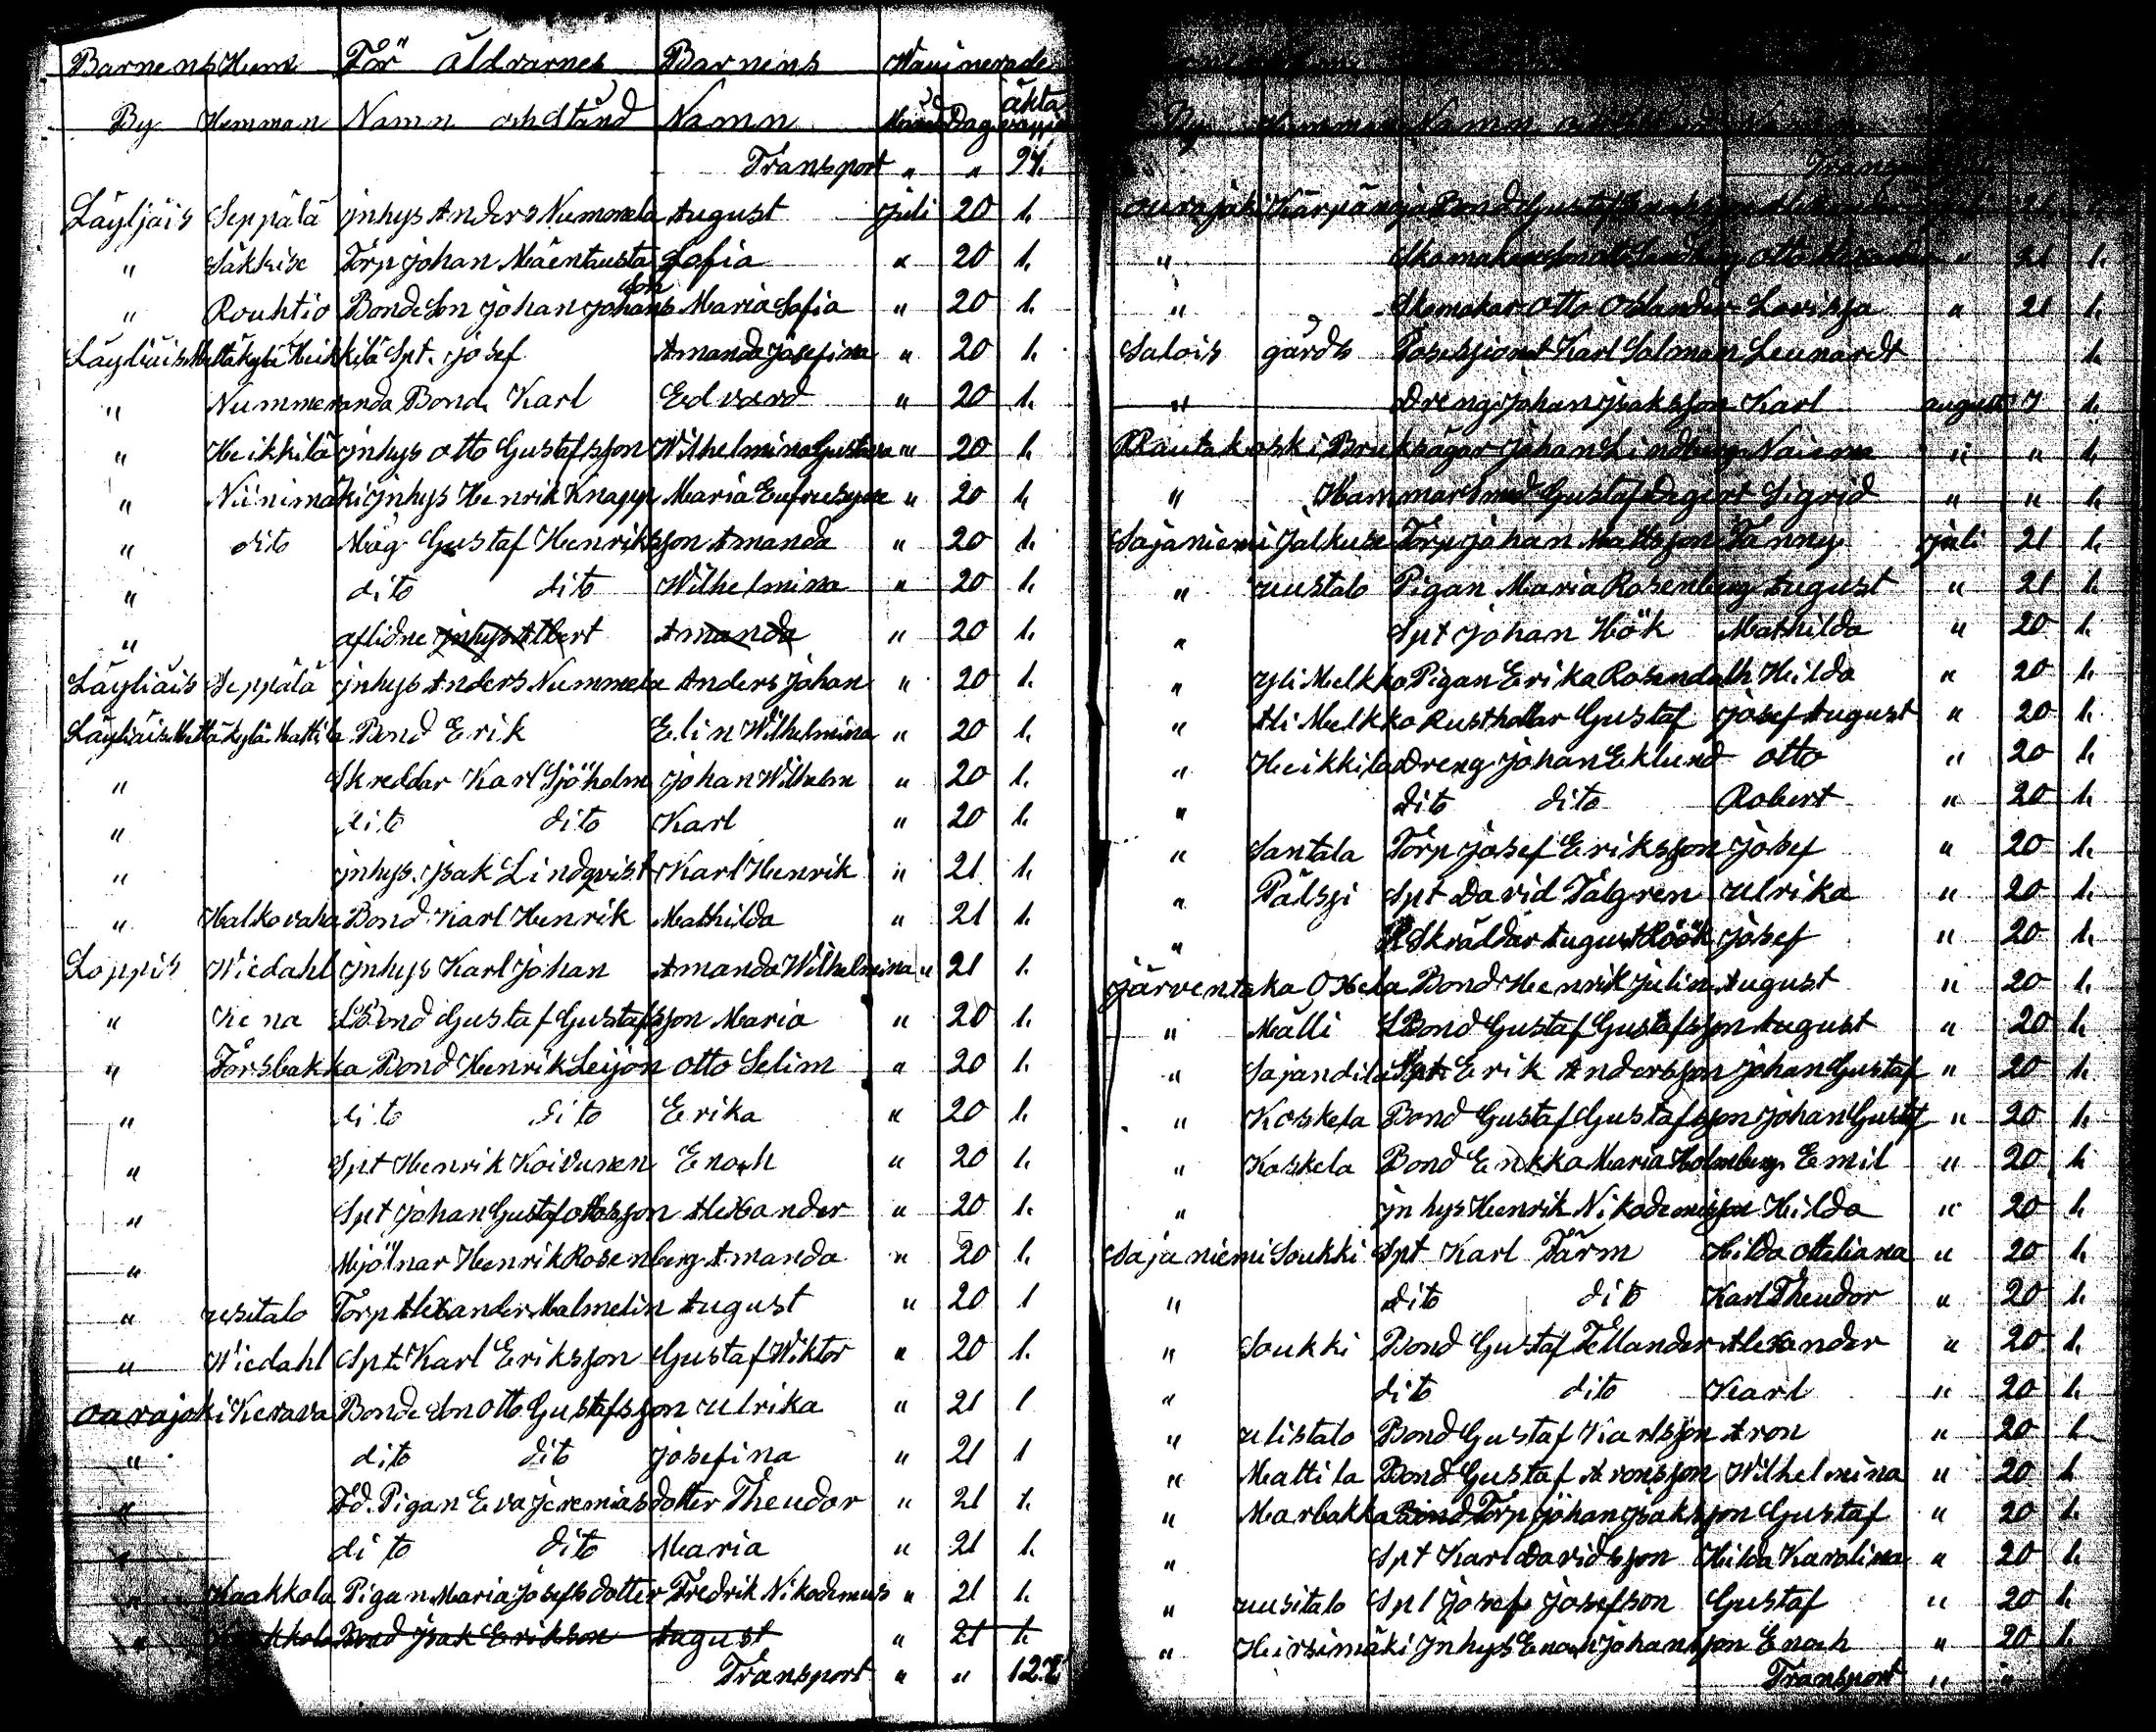 Barnens Hem För äldrarnes Barnens Waccinerade
By Hemman Namn och Stånd Namn Månad Dag äkta
Transport " "
Läyliäis Seppälä jnhys Anders Nummela August juli 20 1.
" Säkkise Torp johan Mäentausta Sofia " 20 1.
" Rouhtio Bonde Son johan johans son Maria Sofia " 20 1.
Läyliäis Mettäkylä Heikkilä Spt. josef Amanda josefina " 20 1.
" Nummenranda Bond Karl Edvard " 20 1.
" Heikkilä jnhys otto Gustafsson Wilhelmina Gustava " 20 1.
" Niinimäki jnhys Henrik Knapp Maria Eufrusyne " 20 1.
" dito Måg Gustaf Henriksson Amanda " 20 1.
" dito dito Wilhelmina " 20 1.
" aflidne jnhys Albert Amanda " 20 1.
Läyliäis Seppälä jnhys Anders Nummela Anders johan " 20 1.
Läyliäis Mettäkylä Mattila Bond Erik Elin Wilhelmina " 20 1.
" Skreddar Karl Sjöholm johan Wilhelm " 20 1.
" dito dito Karl " 20 1.
" jnhys. jsak Lindqvist Karl Henrik " 21 1.
" Halkovaha Bond Karl Henrik Mathilda " 21 1.
Loppis Wiedahl jnhys Karl johan Amanda Wilhelmina " 21 1.
" Kena Bond Gustaf Gustafsson Maria " 20 1.
" Forsbakka Bond Henrik Leijon otto Selim " 20 1.
" dito dito Erika " 20 1.
" Spt Henrik Koivunen Enoch " 20 1.
" Spt johan Gustaf ottosson Alexander " 20 1.
" Mjölnar Henrik Rosenberg Amanda " 20 1.
" usitalo Torp Alexander Malmelin August " 20 1
" Wiedahl Spt Karl Eriksson Gustaf Wiktor " 20 1.
oarajoki Kerava Bonde Son otto Gustafsson ulrika " 21 1
" dito dito josefina " 21 1
" Fd. Pigan Eva jeremiasdotter Theudor " 21 1.
dito dito Maria " 21 1.
" Kaakkola Pigan Maria josefsdotter Fredrik Nikodemus " 21 1.
Bond jsak Erikson August " 21 1.
Transport " "
By Hemman Namn
Transport
Bond Gustaf 21
" Skomakar otto Alexander " 21 1.
" Skomakar otto oblander Lovissa " 21 1.
Salois gårds Posessionat Karl Salman Leunardt 1.
" Dreng johan jsaksson Karl august 7 1.
Rautakoski Bruksägar johan Lindberg Naima " " 1.
" Hammarsmed Gustaf Dagert Sigrid " " 1.
Sajaniemi jalkuse Torp johan Mattsson Fanny juli 21 1.
" uustalo Pigan Maria Rosenberg August " 21 1.
" Spt johan Höök Mathilda " 20 1.
" yli Melkko Pigan Erika Rosendalh Hilda " 20 1.
" Ali Melkko Rusthollar Gustaf josef August " 20 1.
" Heikkila Dreng johan Eklund otto " 20 1.
" dito dito Robert " 20 1.
" Santala Torp josef Eriksson josef " 20 1.
" Pälssi Spt David Tälgren ulrika " 20 1.
" Skräddar August Höök josef " 20 1.
järventaka Bond Henrik julin August " 20 1.
" Mälli Bond Gustaf Gustafsson August " 20 1.
" Sajandila Spt Erik Andersson johan Gustaf " 20 1.
" Koskela Bond Gustaf Gustafsson johan Gustf " 20 1.
" Koskela Bond Enkka Maria Holmberg Emil " 20 1.
" jnhys Henrik Nikodemisson Hilda " 20 1.
Sajaniemi Soukki Spt Karl Färm Hilda otteliana " 20 1.
" dito dito Karl Theudor " 20 1.
" Soukki Bond Gustaf Tellander Alexander " 20 1.
" dito dito Karl " 20 1.
" ulistalo Bond Gustaf Karlsson Aron " 20 1.
" Mattila Bond Gustaf Aronsson Wilhelmina " 20 1.
" Marbakka Bond Torp johan jsaksson Gustaf " 20 1.
" Spt Karl Davidsson Hilda Karolina " 20 1.
" uusitalo Spt josef josefson Gustaf " 20 1.
" Hirsimäki jnhys Enoch johansson Enoch " 20 1.
Transport " "